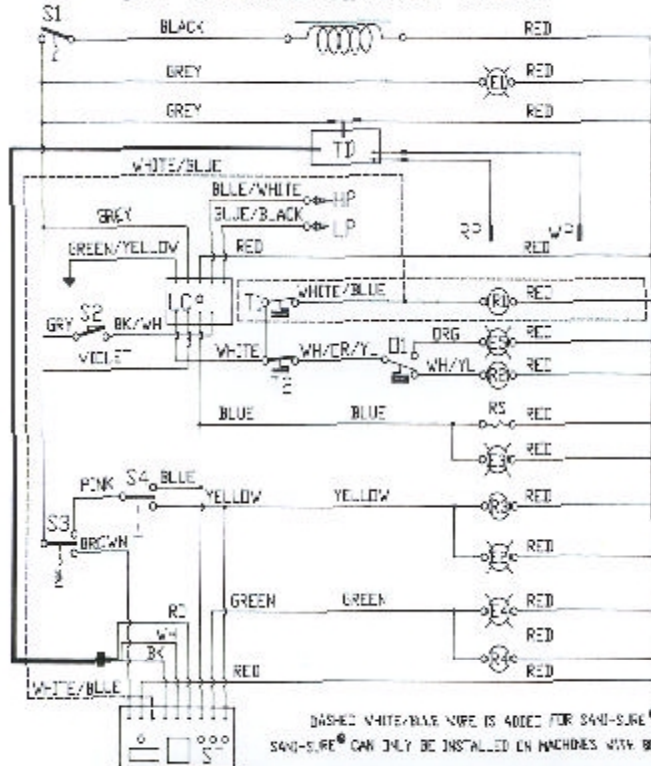 S1
BLACK
RED
GREY
E1
RED
GREY
RED
TD
WHITE/BLUE
BLUE/WHITE
HP
BLUE/BLACK
LP
GREY
RED
RP
WP
RED
GREEN/YELLOW
LC
T1
WHITE/BLUE
R1
RED
S2
GRY
BK/WH
VIOLET
WHITE
WH/OR/YL
O1
ORG
E5
RED
WH/YL
R2
RED
BLUE
BLUE
RS
RED
E3
RED
PINK
S4
BLUE
YELLOW
YELLOW
R3
RED
S3
BROWN
E2
RED
RD
GREEN
GREEN
E4
RED
WH
RED
BK
R4
RED
RED
WHITE/BLUE
DASHED WHITE/BLUE WIRE IS ADDED FOR SANI-SURE®
SANI-SURE® CAN ONLY BE INSTALLED ON MACHINES WITH